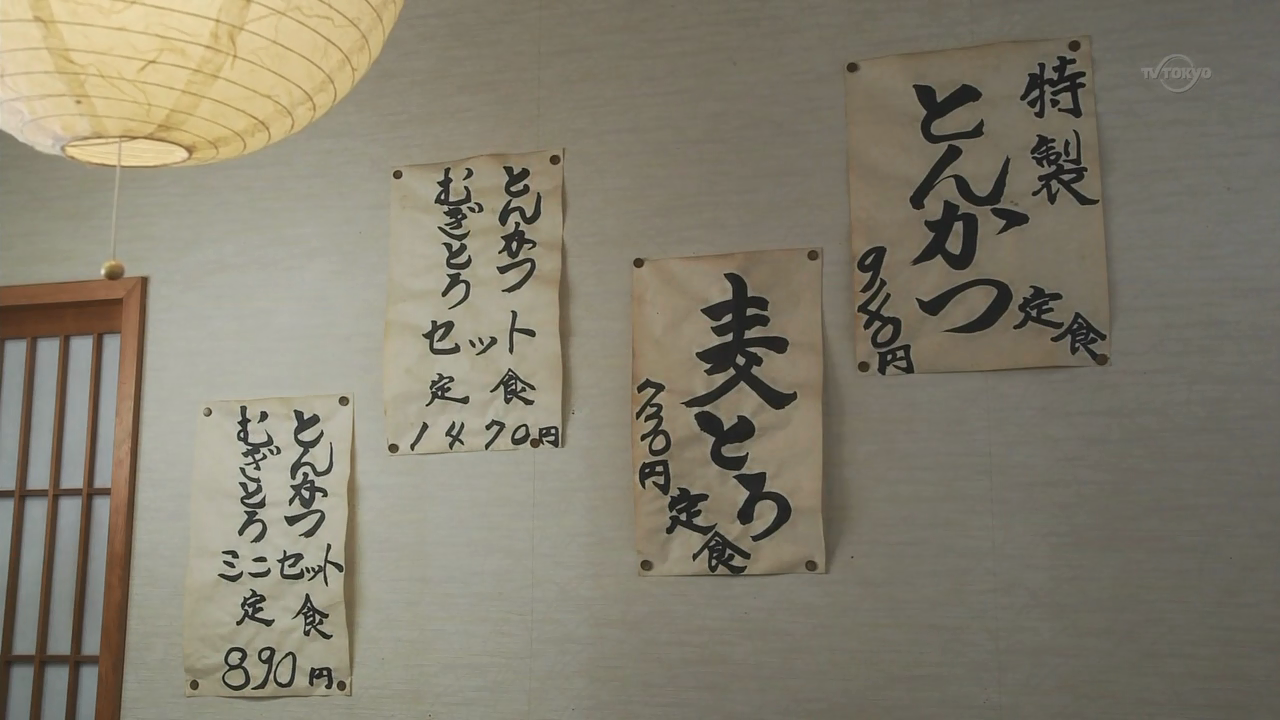 TV TOKYO
特製
とんかつ
定食
麦とろ
定食
とんかつ
むぎとろ
セット
定食
1470円
とんかつ
むぎとろ
ミニセット
定食
890円